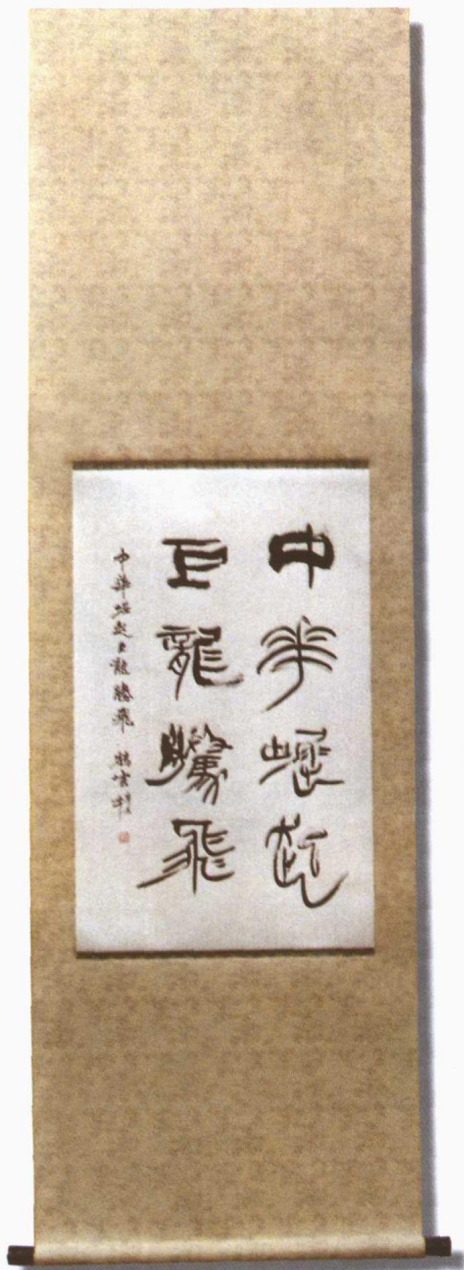 中華崛起
巨龍騰飛
中華崛起巨龍騰飛